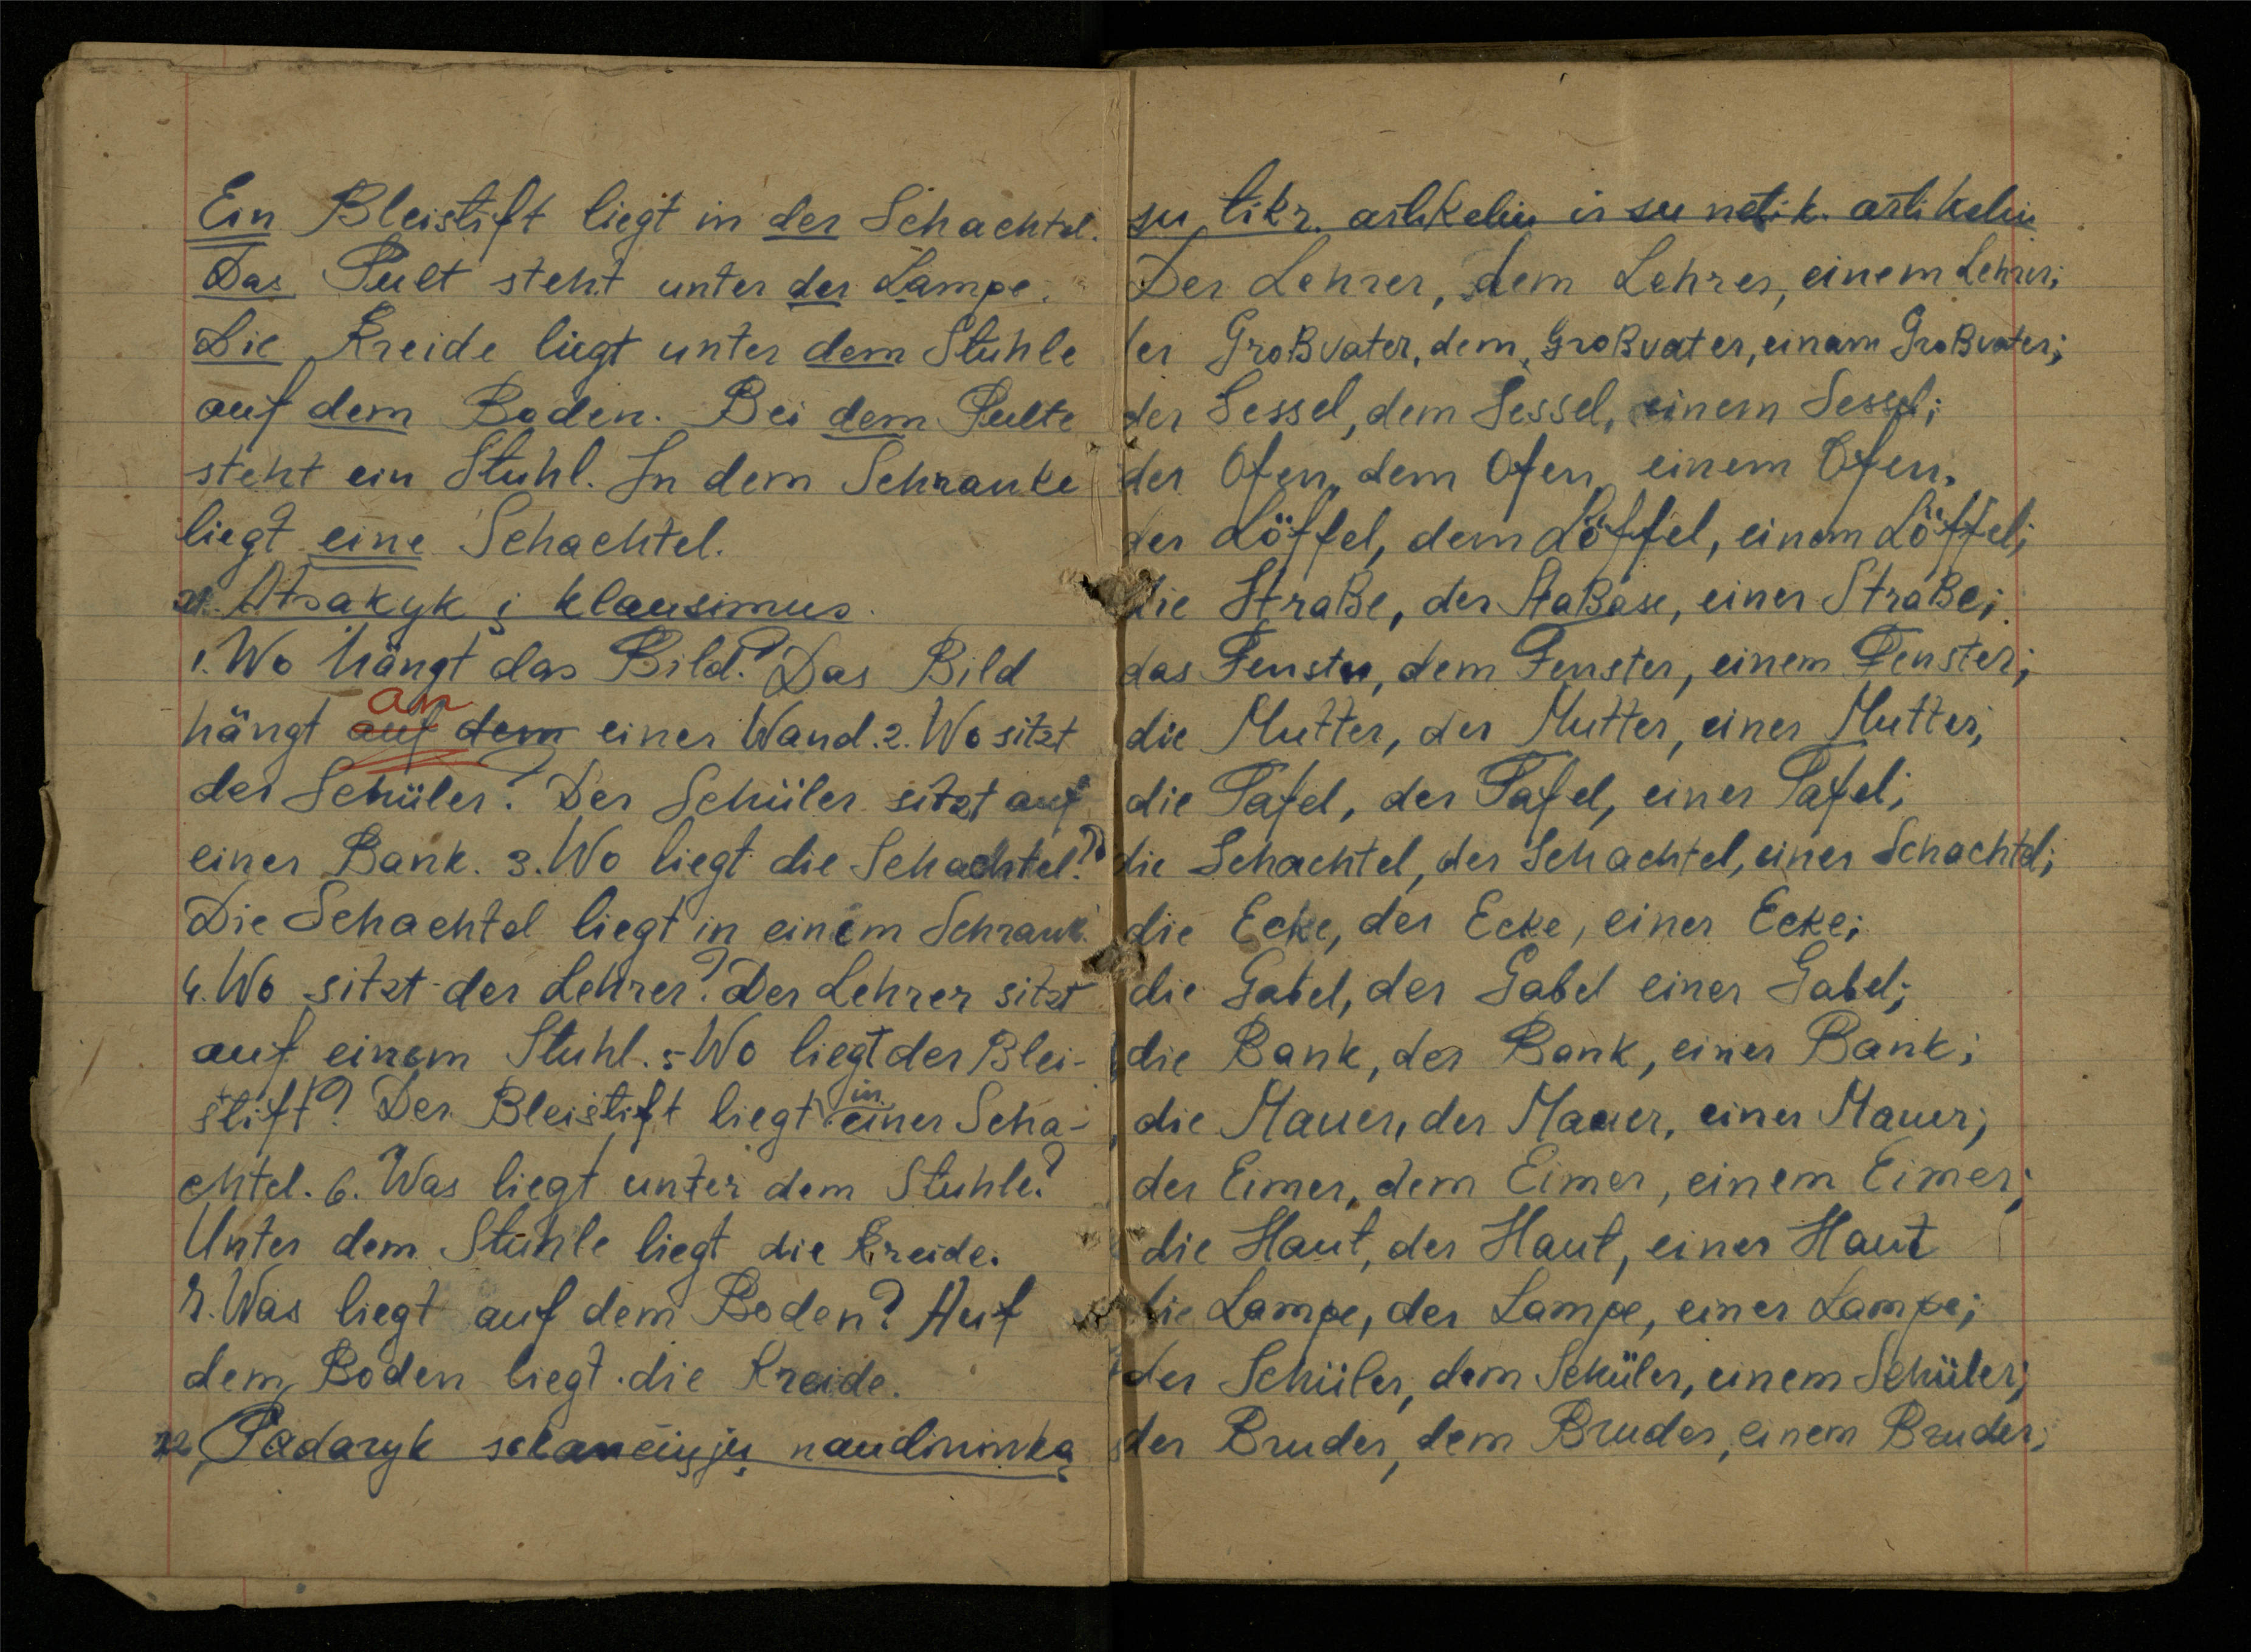 Ein Bleistift liegt in der Schachtel.
Das Pult steht unter der Lampe.
Die Kreide liegt unter dem Stuhle
auf dem Boden. Bei dem Pulte
steht ein Stuhl. In dem Schranke
liegt eine Schachtel.
21. Atsakyk į klausimus.
1. Wo hängt das Bild? Das Bild
an
hängt auf dem einer Wand. 2. Wo sitzt
der Schüler? Der Schüler sitzt auf
einer Bank. 3. Wo liegt die Schachtel?
Die Schachtel liegt in einem Schrank.
4. Wo sitzt der Lehrer? Der Lehrer sitzt
auf einem Stuhl. 5 Wo liegt der Blei-
stift? Der Bleistift liegt in einer Scha-
chtel. 6. Was liegt unter dem Stuhle?
Unter dem Stuhle liegt die Kreide.
7. Was liegt auf dem Boden? Auf
dem Boden liegt die Kreide.
22 Padaryk sekančiųjų naudininką
su tikr. artikeliu ir su netik. artikeliu
Der Lehrer, dem Lehrer, einem Lehrer;
der Großvater, dem Großvater, einam Großvater;
der Sessel, dem Sessel, einem Sessel;
der Ofen, dem Ofen, einem Ofen.
der Löffel, dem Löffel, einem Löffel;
die Straße, der Staßase, einer Straße;
das Fenster, dem Fenster, einem Fenster;
die Mutter, der Mutter, einer Mutter;
die Tafel, der Tafel, einer Tafel;
die Schachtel, der Schachtel, einer Schachtel;
die Ecke, der Ecke, einer Ecke;
die Gabel, der Gabel einer Gabel;
die Bank, der Bank, einer Bank;
die Mauer, der Mauer, einer Mauer;
der Eimer, dem Eimer, einem Eimer;
die Haut, der Haut, einer Haut
die Lampe, der Lampe, einer Lampe;
der Schüler, dem Schüler, einem Schüler;
der Bruder, dem Bruder, einem Bruder;